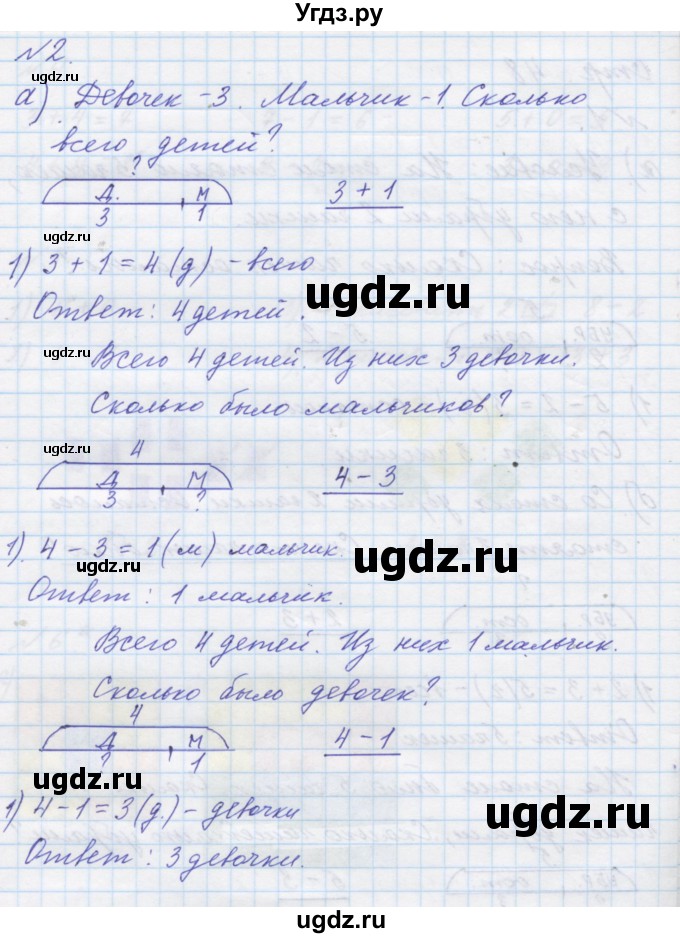 Угдз.ру
№2.
а) Девочек - 3. Мальчик - 1. Сколько
всего детей?
?
Д. М
3 1
3 + 1
1) 3 + 1 = 4 (д) - всего
Ответ: 4 детей.
Всего 4 детей. Из них 3 девочки.
Сколько было мальчиков?
4
Д М
3 ?
4 - 3
1). 4 - 3 = 1 (м) мальчик.
Ответ: 1 мальчик.
Всего 4 детей. Из них 1 мальчик.
Сколько было девочек?
4
Д М
? 1
4 - 1
1) 4 - 1 = 3 (д.) - девочки
Ответ: 3 девочки.
ugdz.ru
ugdz.ru
ugdz.ru
ugdz.ru
ugdz.ru
ugdz.ru
ugdz.ru
ugdz.ru
ugdz.ru
ugdz.ru
ugdz.ru